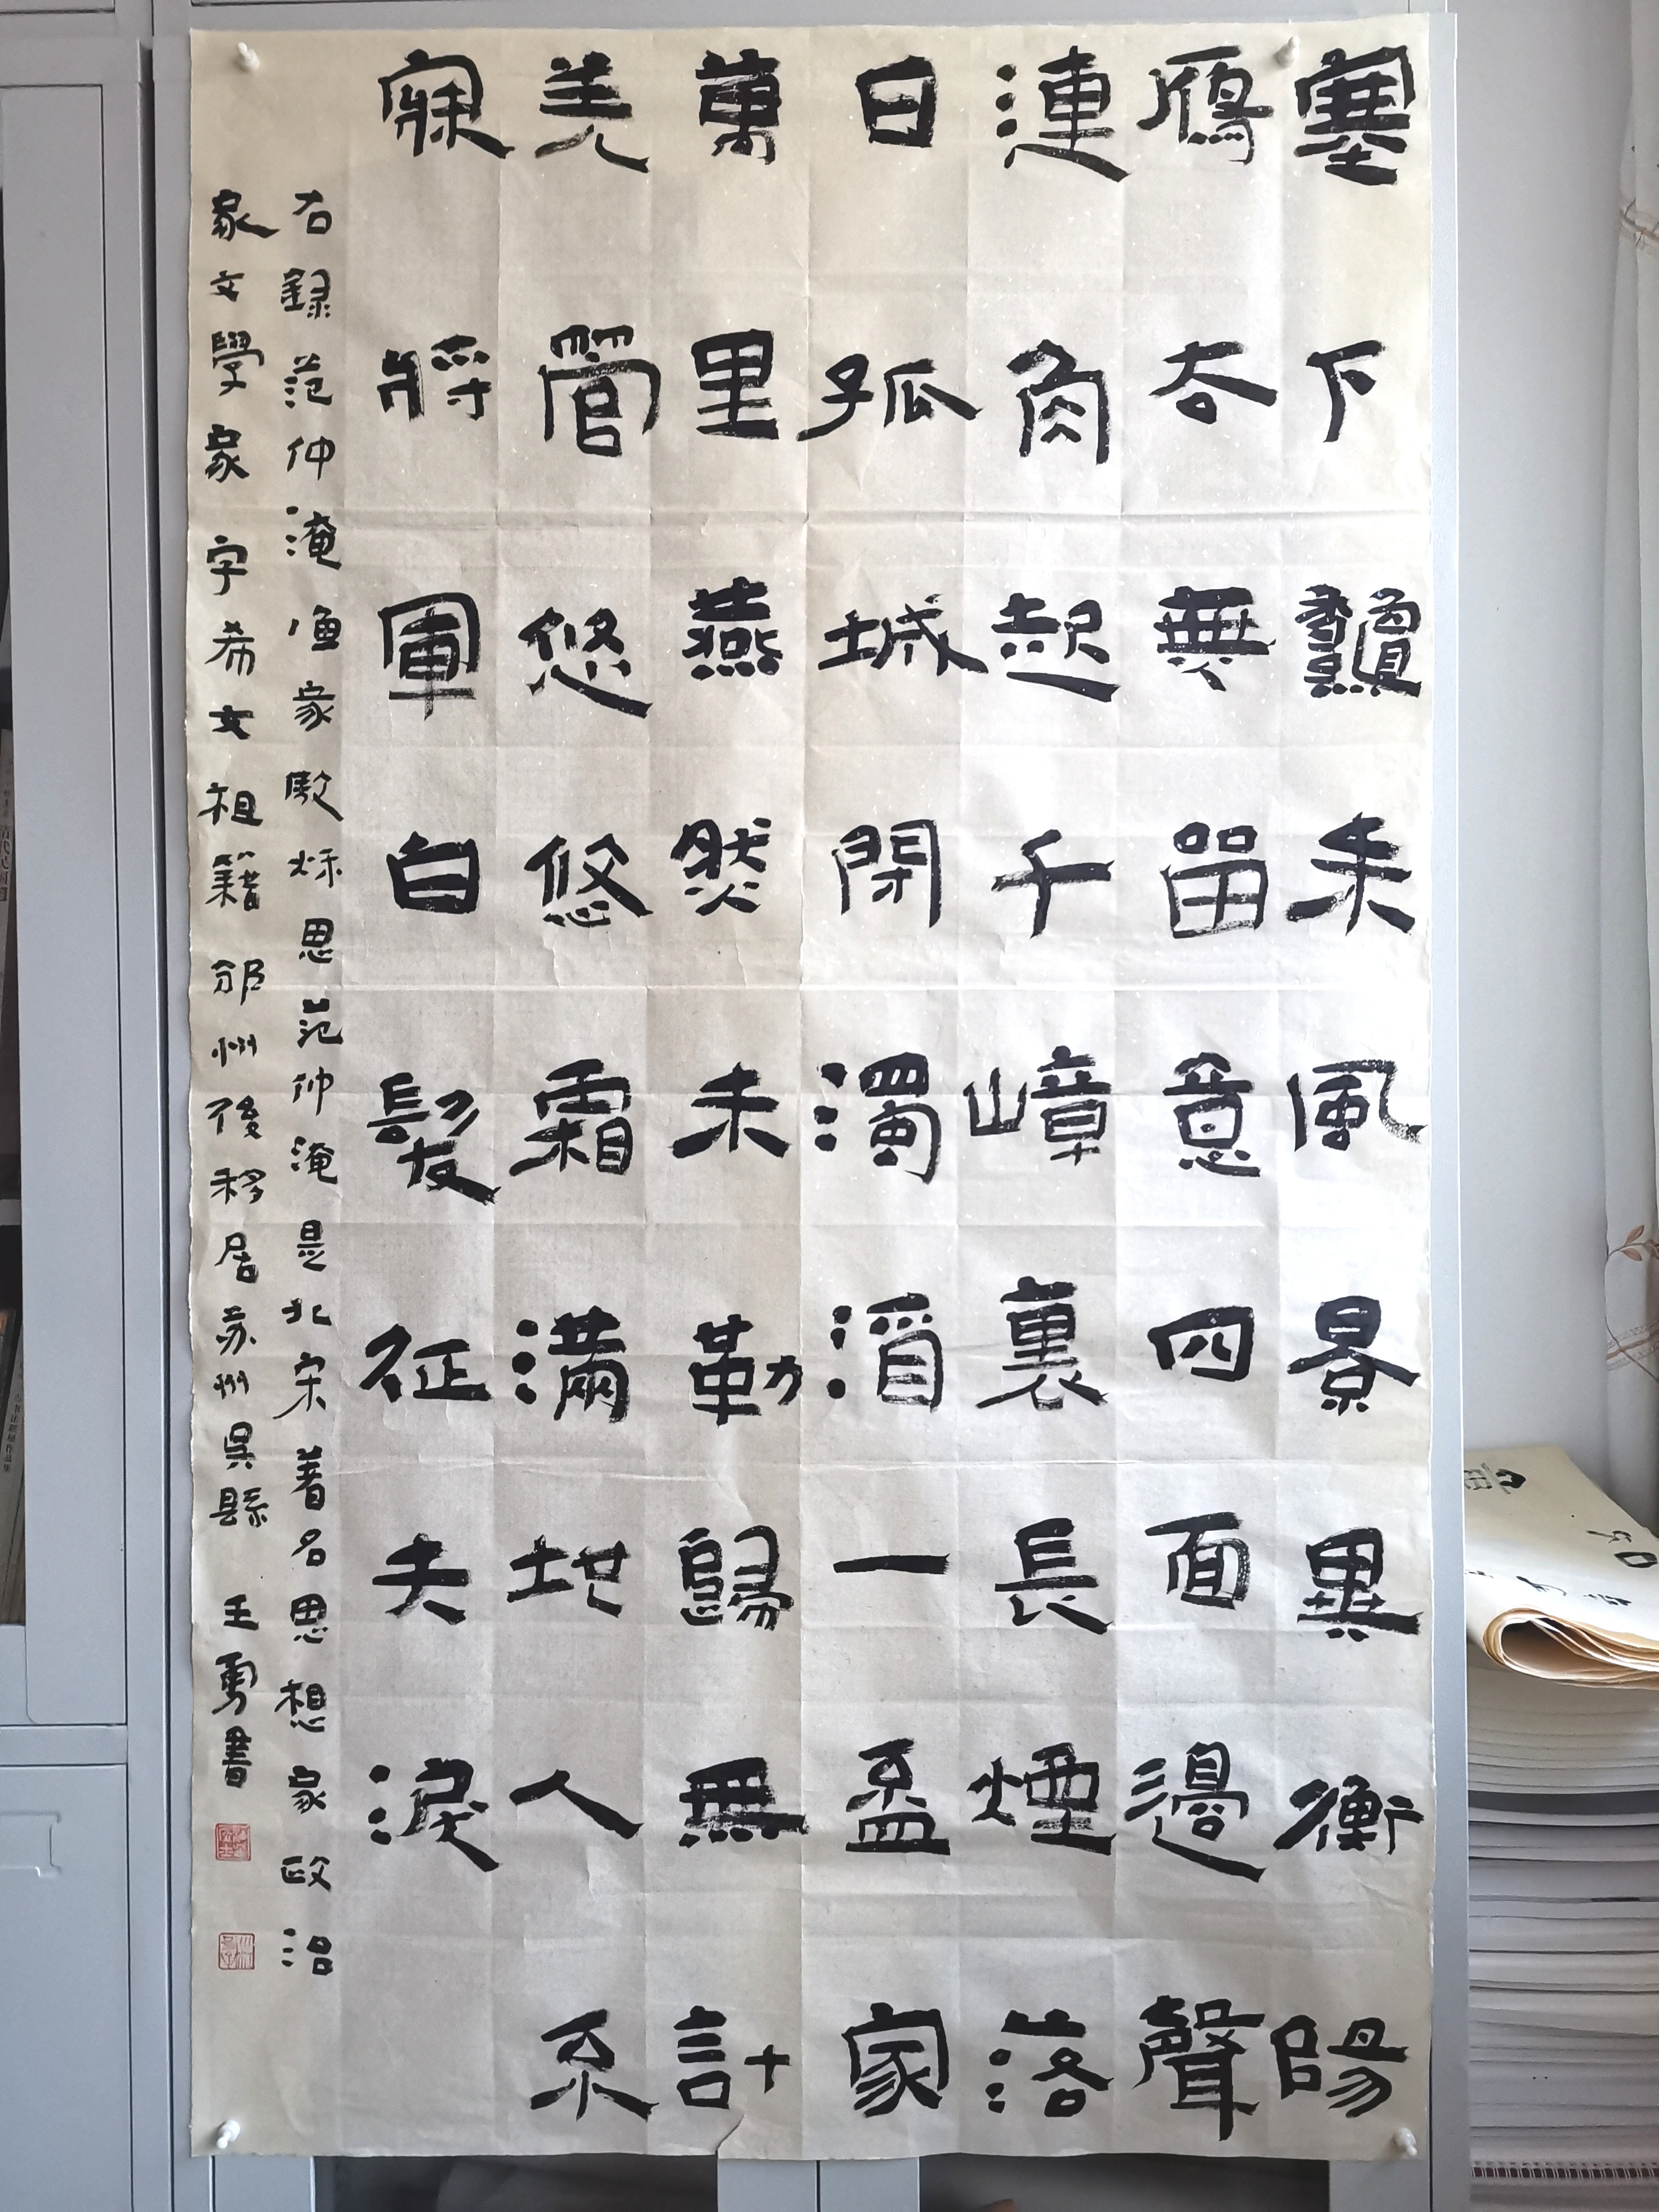 塞下龝未風景異衡陽
鴈去無留意四面邊聲
連角起千嶂裏長煙落
日孤城閉濁酒一盃家
萬里燕然未勒歸無計
羌管悠悠霜滿地人不
寐將軍白髮征夫淚
右録范仲淹漁家傲秋思范仲淹是北宋著名思想家政治
家文學家字希文祖籍邠州後移居苏州吴縣王勇書